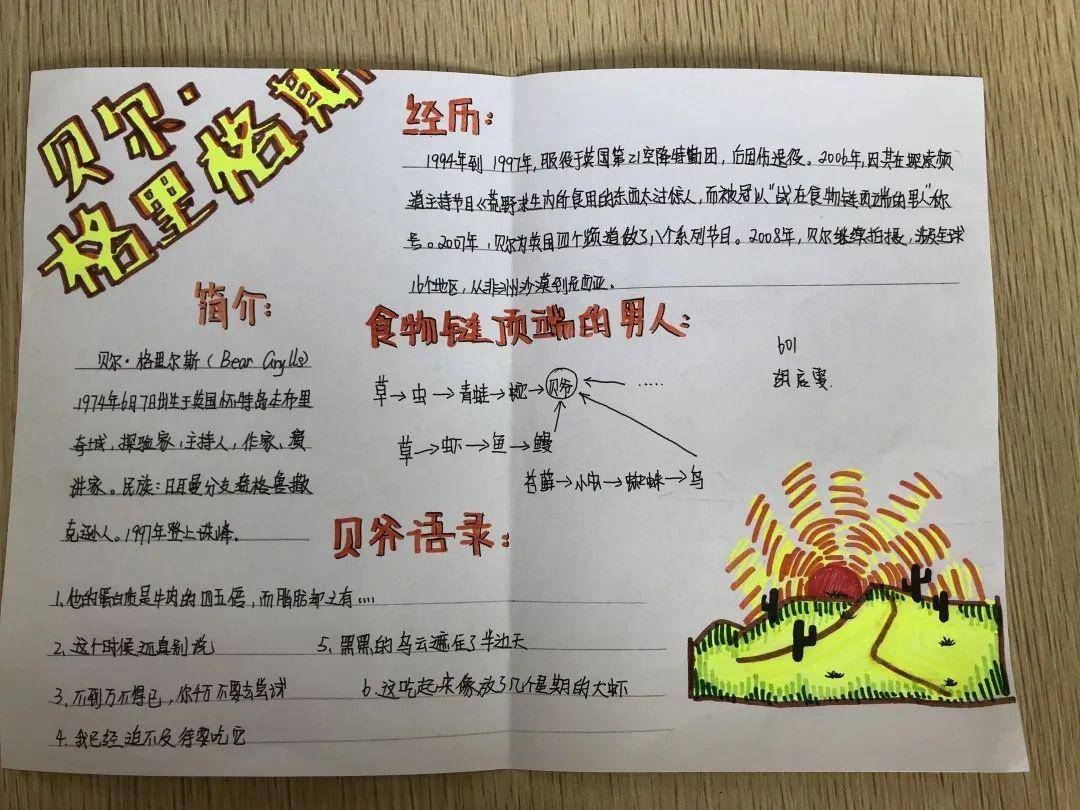 贝尔·
格里格斯
经历:
1994年到1997年,服役于英国第21空降特勤团,后因伤退役。2006年,因其在探索频
道主持节目《荒野求生内所食用的东西太过惊人,而被冠以“站在食物链顶端的男人”称
号。2007年,贝尔为英国四个频道做了八个系列节目。2008年,贝尔继续拍摄,涉及全球
16个地区,从非洲沙漠到尼西亚。
简介:
贝尔·格里尔斯(Bear Grylls)
1974年6月7日出生于英国怀特岛本布里
奇城,探险家,主持人,作家、演
讲家。民族:日耳曼分支盎格鲁撒
克逊人。1997年登上珠峰。
食物链顶端的男人:
草→虫→青蛙→蛇→贝爷←……
草→虾→鱼→鳗
苔藓→小虫→蜘蛛→鸟
601
胡启
贝爷语录:
1.他的蛋白质是牛肉的四五倍,而脂肪却只有....
2.这个时候还真别说
3.不到万不得已,你千万不要去尝试
4.我已经迫不及待要吃它
5.黑黑的乌云遮住了半边天
6.这吃起来像放了几个星期的大虾